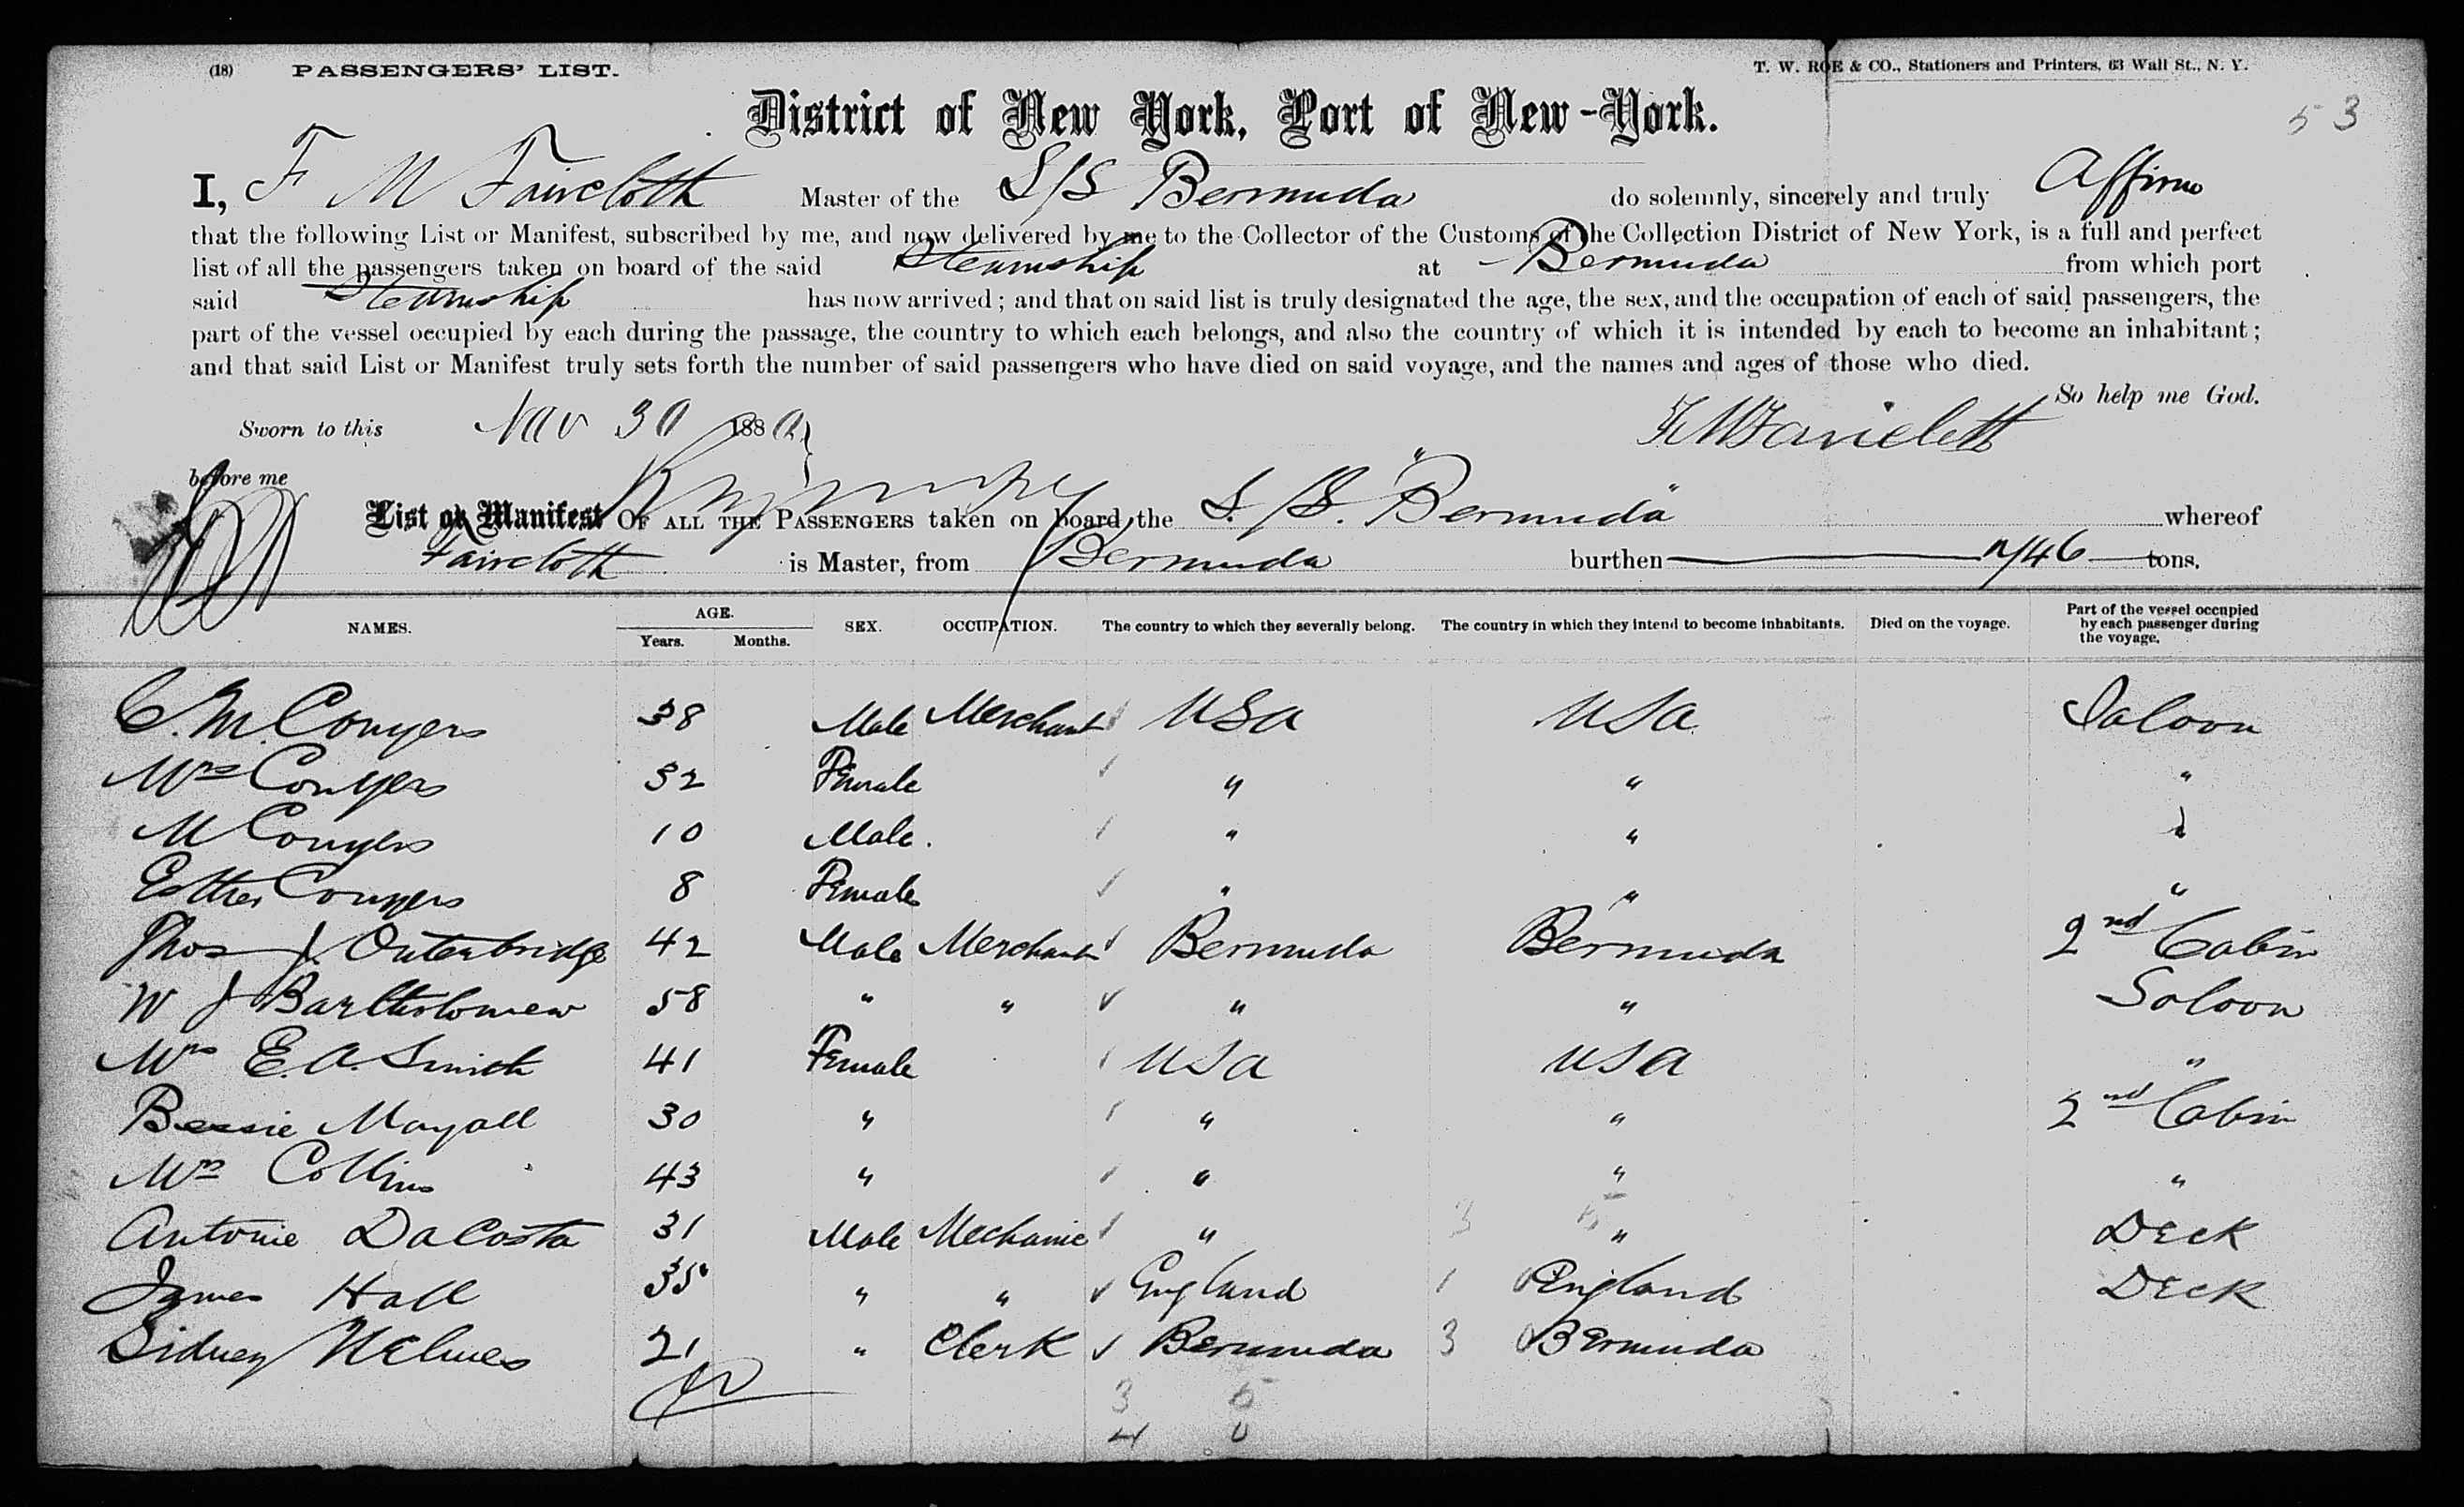 (18) PASSENGERS' LIST. T. W. ROE & CO., Stationers and Printers, 63 Wall St., N. Y.
District of New York, Port of New-York. 53
I, F M Faircloth Master of the S/S Bermuda do solemnly, sincerely and truly Affirm
that the following List or Manifest, subscribed by me, and now delivered by me to the Collector of the Customs of the Collection District of New York, is a full and perfect
list of all the passengers taken on board of the said Steamship at Bermuda from which port
said Steamship has now arrived; and that on said list is truly designated the age, the sex, and the occupation of each of said passengers, the
part of the vessel occupied by each during the passage, the country to which each belongs, and also the country of which it is intended by each to become an inhabitant;
and that said List or Manifest truly sets forth the number of said passengers who have died on said voyage, and the names and ages of those who died.
So help me God.
Sworn to this Nov 30 188 F M Faircloth
before me
List or Manifest OF ALL THE PASSENGERS taken on board the S./S. "Bermuda" whereof
Faircloth is Master, from Bermuda burthen 746 tons.
NAMES. AGE. Years. Months. SEX. OCCUPATION. The country to which they severally belong. The country in which they intend to become inhabitants. Died on the voyage. Part of the vessel occupied by each passenger during the voyage.
C. M. Conyers 38 Male Merchant USA USA Saloon
Mrs Conyers 32 Female " " "
M Conyers 10 Male. " " "
Esther Conyers 8 Female " " "
Thos J. Outerbridge 42 Male Merchant Bermuda Bermuda 2nd Cabin
W J Bartholomew 58 " " " " Saloon
Mrs E. A. Smith 41 Female USA USA "
Bessie Mayall 30 " " " 2nd Cabin
Mrs Collins 43 " " " "
Antonie DaCosta 31 Male Mechanic " " Deck
James Hall 35 " " England 1 England Deck
Sidney Nelmes 21 " Clerk Bermuda 3 Bermuda
3 5
4 0